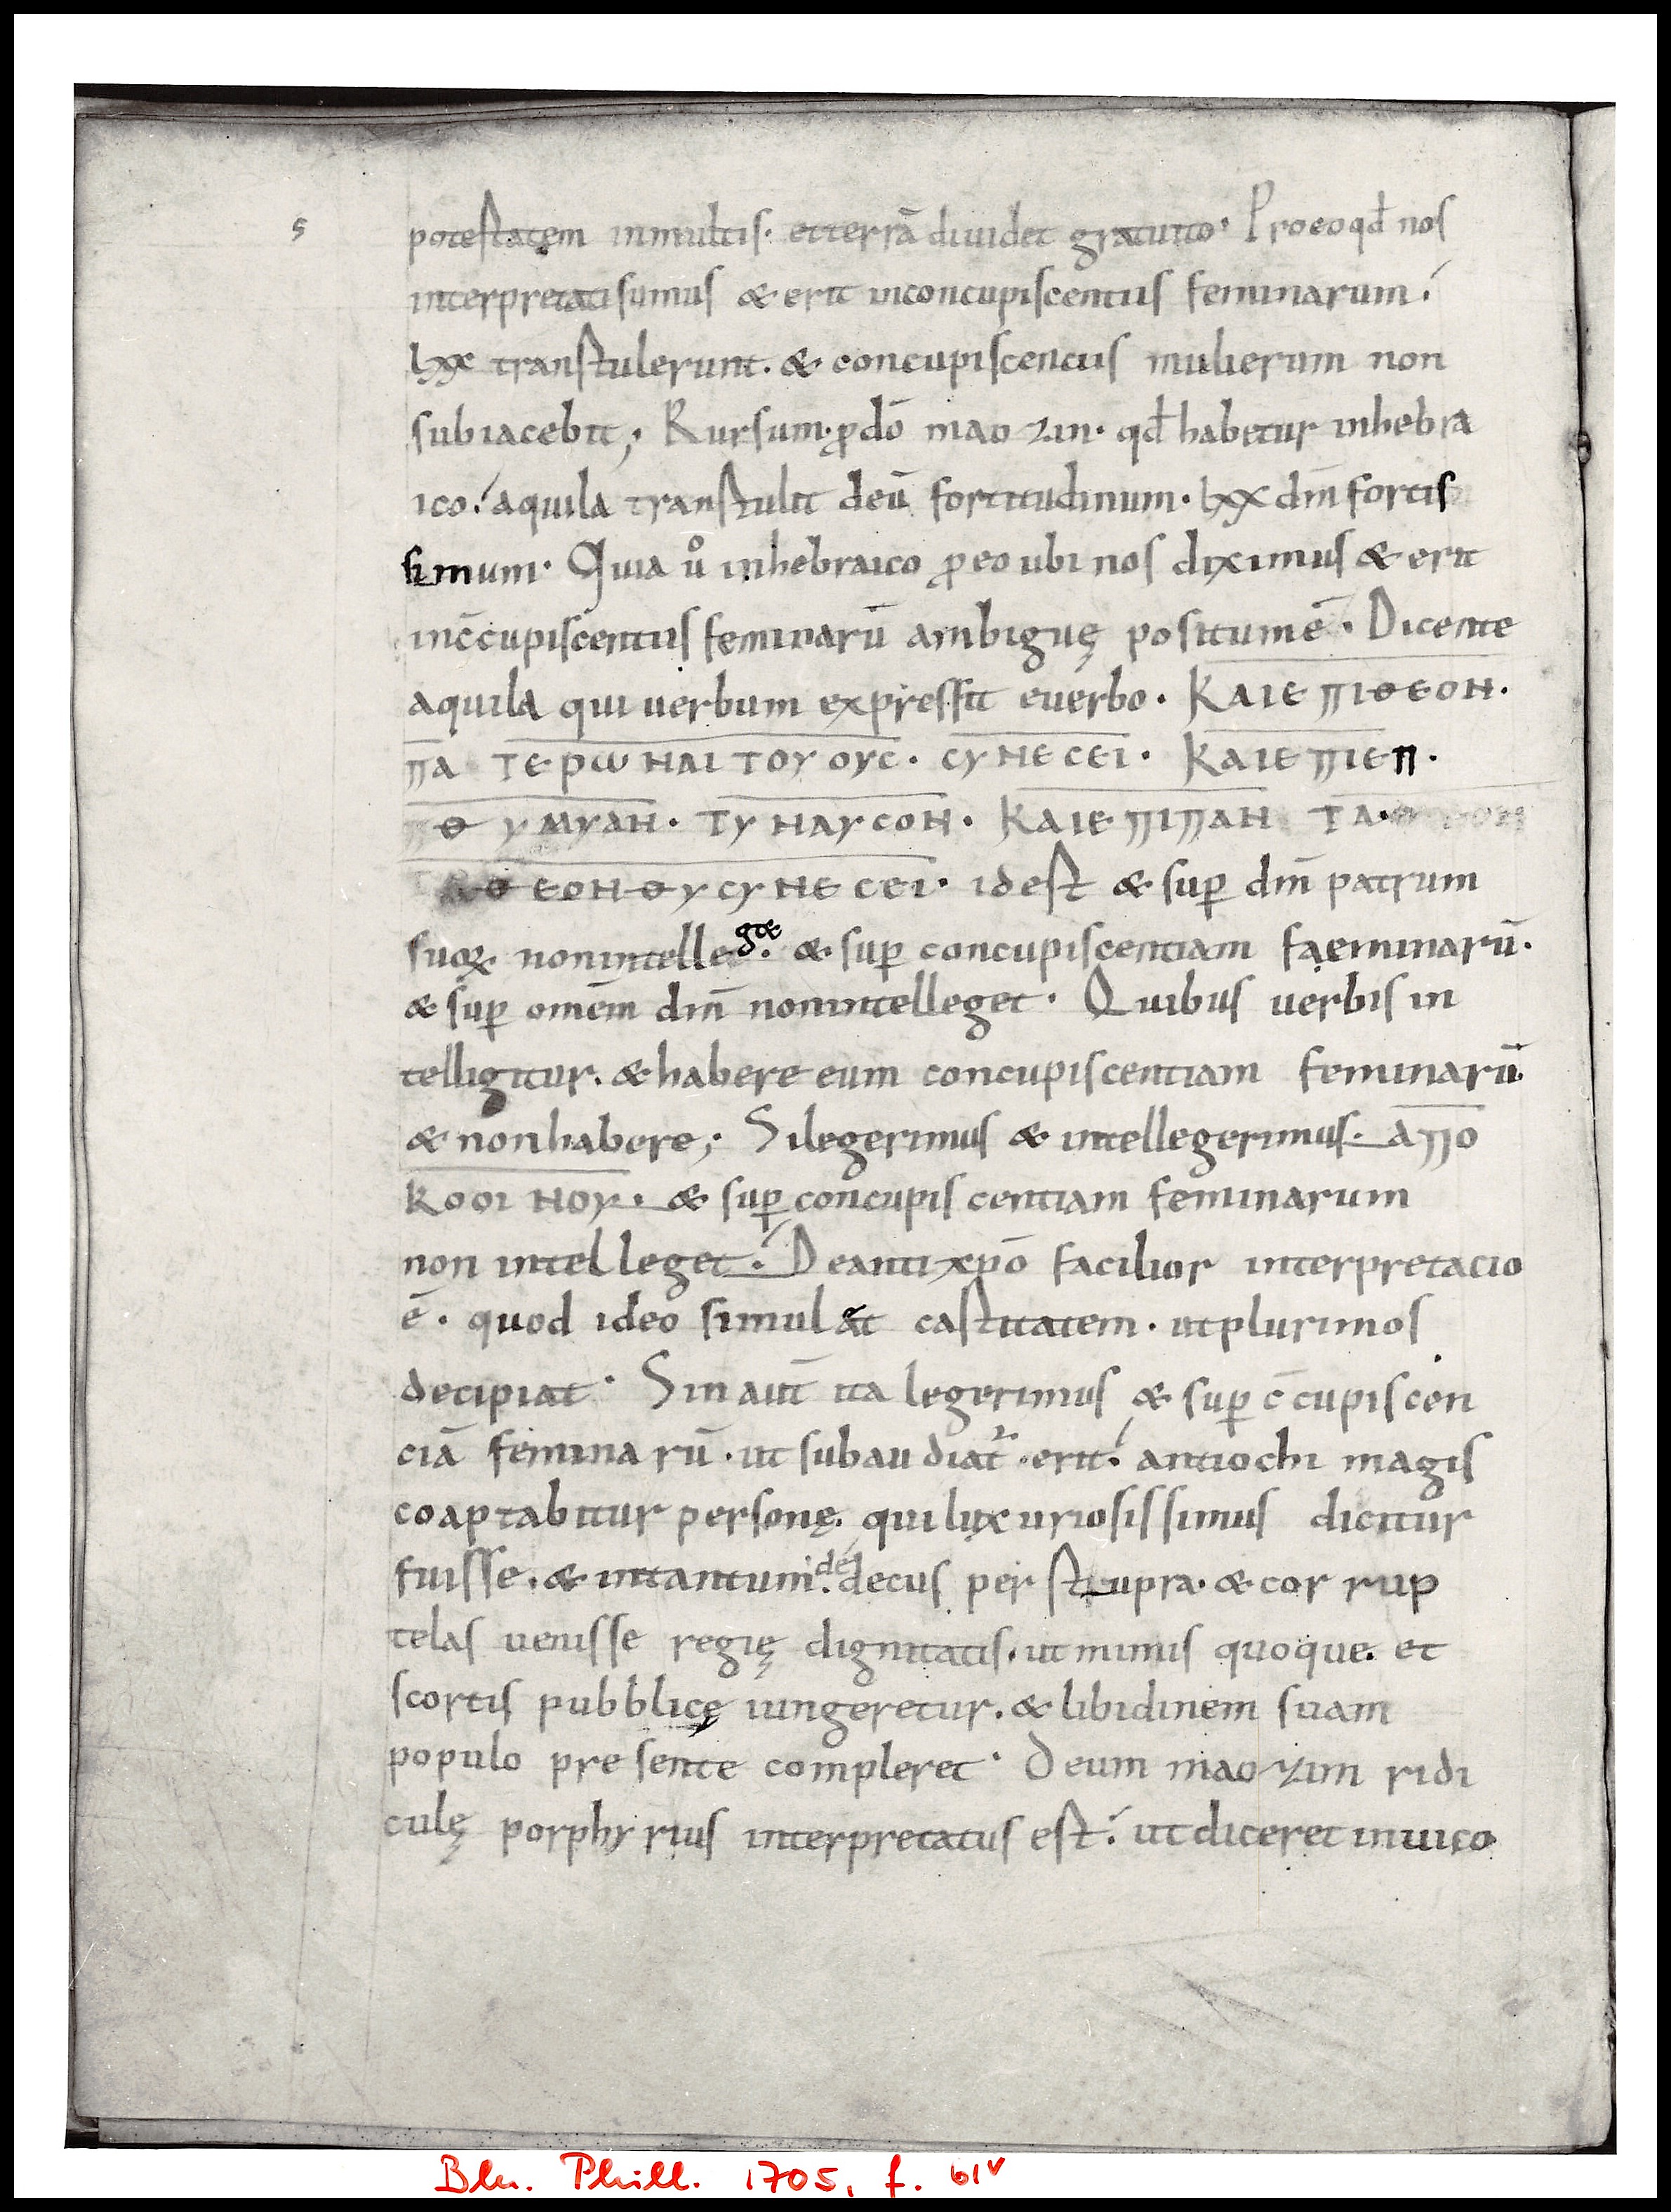 s potestatem inmultis· etterrā diuidet gratuito· Proeoqđ nos
interpretatisumus & erit inconcupiscentiis feminarum·
lxx transtulerunt· & concupiscenciis mulierum non
subiacebit; Rursum· ꝓdō mao zin· qđ habetur inhebra
ico· aquila transtulit deū fortitudinum· lxx dm̄ fortis
simum· Quia uͦ inhebraico ꝓ eo ubi nos diximus & erit
inc̄cupiscentiis feminarū ambiguę positumē· Dicente
aquila qui uerbum expressit euerbo· ΚΑΙΕ ΠΙΘΕΟΝ·
ΠΑ ΤΕΡΩ ΝΑΙ ΤΟΥ ΟΥC· CΥΝΕ CΕΙ· ΚΑΙΕ ΠΙΕΠ·
ΠΘ ΥΜΥΑΝ· ΤΥ ΝΑΥ CΟΝ· ΚΑΙΕ ΠΙΠΑΝ ΤΑ·
Θ ΕΟΝ ΘΥ CΥ ΝΕ CΕΙ· idest & suꝑ dm̄ patrum
suoꝝ nonintelleget· & suꝑ concupiscentiam faeminarū·
& suꝑ omēm dm̄ nonintelleget· Quibus uerbis in
telligitur· & habere eum concupiscentiam feminarū·
& nonhabere; Silegerimus & intellegerimus· ΑΠΟ
ΚΟΟΙ ΝΟΥ· & suꝑ concupis centiam feminarum
non intelleget· Deantixpō facilior interpretacio
ē· quod ideo simulat castitatem· utplurimos
decipiat· Sin aut̄ ita legerimus & suꝑ c̄cupiscen
ciā femina rū· ut subau diat᷑· erit· antiochi magis
coaptabitur personę· qui luxuriosissimus dicitur
fuisse· & intantum· dedecus per stupra· & cor rup
telas uenisse regię dignitatis· ut mimis quoque· et
scortis pubblicę iungeretur· & libidinem suam
populo pre sente compleret· Deum mao zim ridi
culę porphy rius interpretatus est· ut diceret inuico
Bln. Phill. 1705, f. 61v